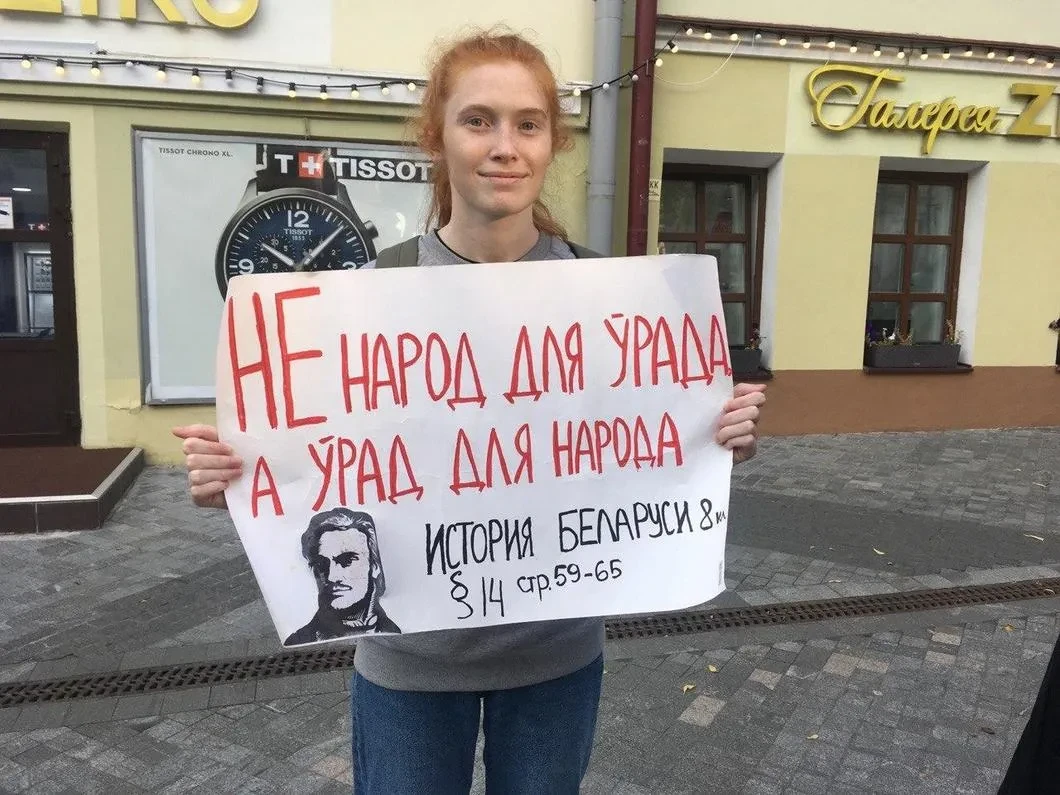 TISSOT CHRONO XL.
T+TISSOT
12
TISSOT
1853
9
Галерея Z
НЕ НАРОД ДЛЯ ЎРАДА,
А ЎРАД ДЛЯ НАРОДА
ИСТОРИЯ БЕЛАРУСИ 8 кл
§ 14 стр. 59-65